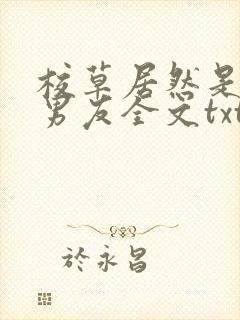 校草居然是
男友全文txt
於永昌